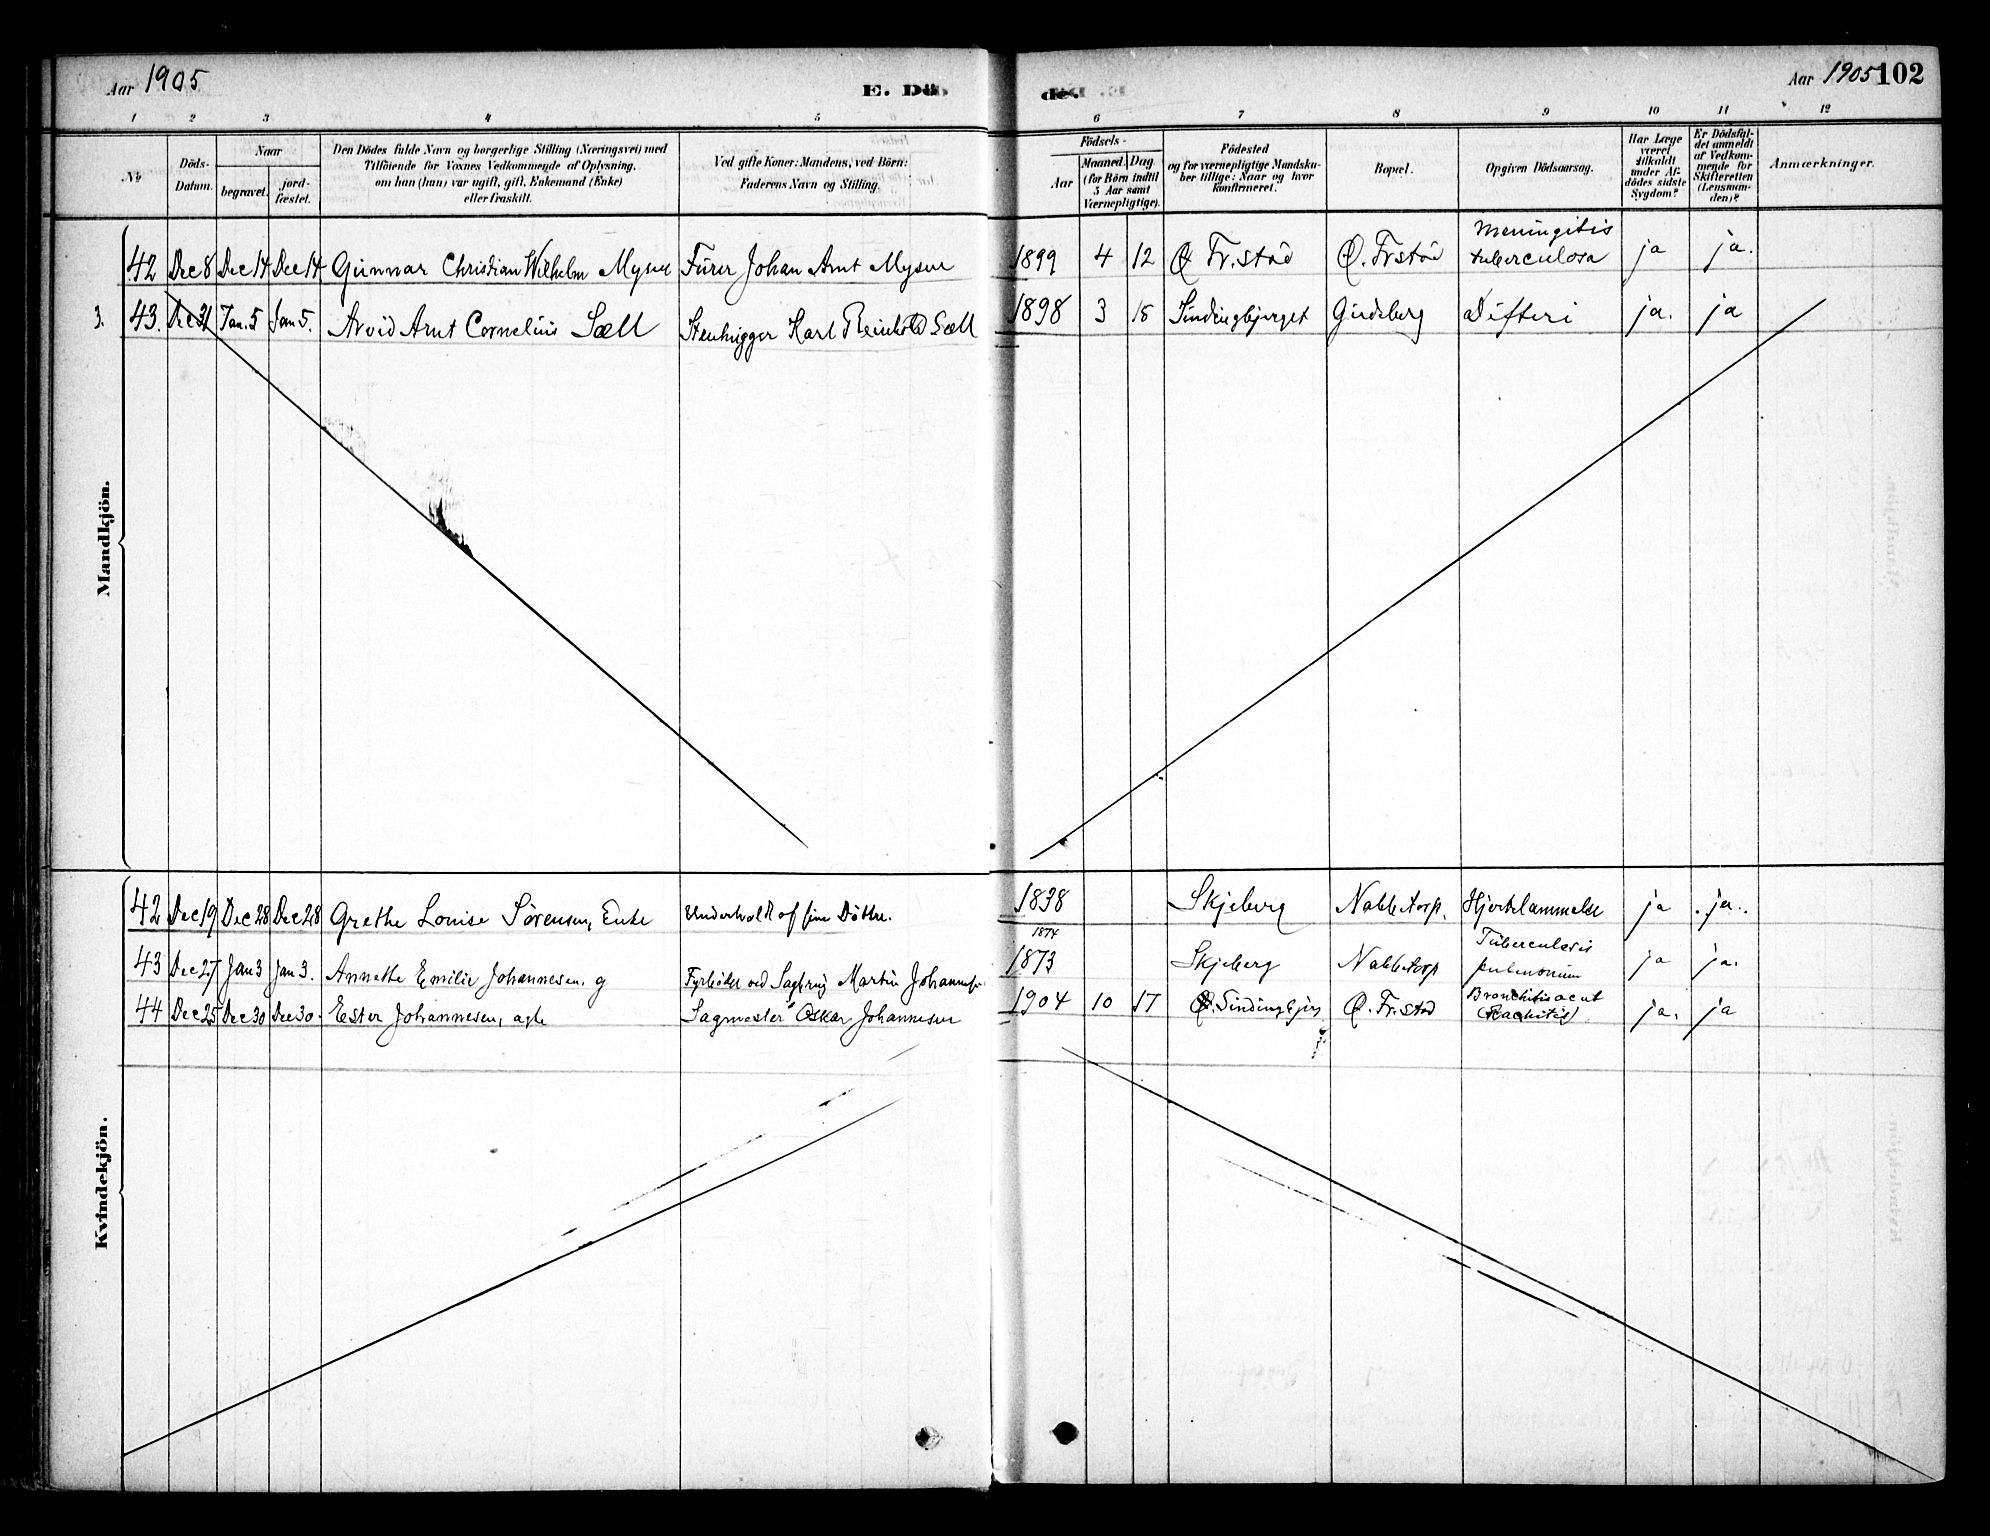 Aar 1905 E. Dö de. Aar 1905 102
1 2 3 4 5 6 7 8 9 10 11 12
№ Döds-Datum. Naar begravet. jord-fæstet. Den Dödes fulde Navn og borgerlige Stilling (Næringsvei) med Tilföiende for Voxnes Vedkommende af Oplysning, om han (hun) var ugift, gift, Enkemand (Enke) eller fraskilt. Ved gifte Koner: Mandens, ved Börn: Faderens Navn og Stilling. Födsels- Aar Maaned. Dag (for Börn indtil 5 Aar samt Værnepligtige). Födested og for værnepligtige Mandskaber tillige: Naar og hvor konfirmeret. Bopæl. Opgiven Dödsaarsag. Har Læge været tilkaldt under Afdödes sidste Sygdom? Er Dödsfaldet anmeldt af Vedkommende for Skifteretten (Lensmanden)? Anmærkninger.
Mandkjön.
42 Dec 8 Dec 14 Dec 14 Gunnar Christian Wilhelm Mysen Fürer Johan Arnt Mysen 1899 4 12 Ø Fr.stad Ø. Frstad Meningitis tuberculosa ja ja.
3. 43. Dec 31 Jan. 5 Jan 5. Arvid Arnt Cornelius Sæll Stenhugger Karl Reinhold Sæll 1898 3 15 Sindingbjerget Gudeberg Difteri ja. ja
Kvindekjön.
42 Dec 19 Dec 28 Dec 28 Grethe Louise Sörensen, Enke Underholdt af sine Döttre. 1838 Skjeberg Nabbetorp. Hjertelammelse ja ja.
43 Dec 27 Jan 3 Jan 3. Annette Emilie Johannesen. g Fyrböder ved Sagbrug Martin Johannesen 1874 1873 Skjeberg Nabbetorp Tuberculosis pulmonum ja ja.
44 Dec 25 Dec 30 Dec 30. Ester Johannesen, agte Sagmester Oskar Johannesen 1904 10 17 Ø. Sindingbjerg Ø. Fr.stad Bronchitis acut (Rachitis) ja. ja